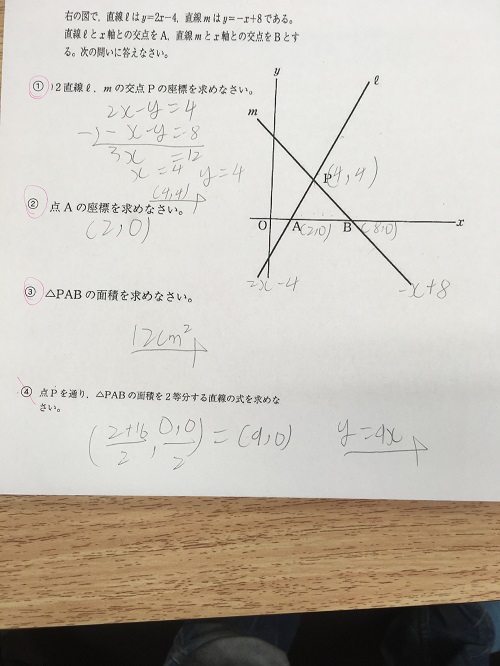 右の図で,直線ℓはy=2x-4,直線mはy=-x+8である。
直線ℓとx軸との交点をA,直線mとx軸との交点をBとす
る。次の問いに答えなさい。
① )2直線ℓ,mの交点Pの座標を求めなさい。
2x-y=4
-x-y=-8
3x =12
x=4 y=4
(4,4)
② 点Aの座標を求めなさい。
(2,0)
③ △PABの面積を求めなさい。
12cm²
④ 点Pを通り,△PABの面積を2等分する直線の式を求めな
さい。
= (9,0) y=4x
y
ℓ
m
P(4,4)
O A(2,0) B (8,0) x
2x-4 -x+8